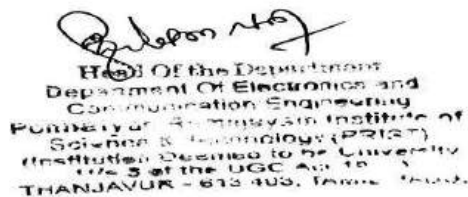 Head Of the Department
Department Of Electronics and
Communication Engineering
Ponnaiyah Ramajayam Institute of
Science & Technology (PRIST)
(Institution Deemed to be University
U/s 3 of the UGC Act
THANJAVUR - 613 403,